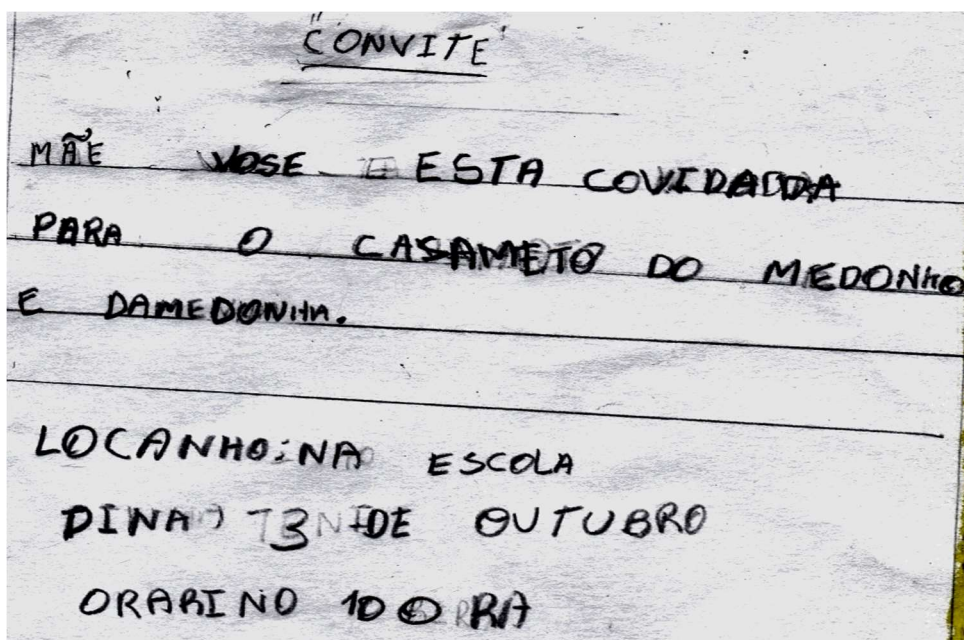 "CONVITE"
MÃE VOSE ESTA COVIDADDA
PARA O CASAMETO DO MEDONHO
E DAMEDONHA.
LOCANHO:NA ESCOLA
DINA 3 DE OUTUBRO
ORARINO 10 O RA